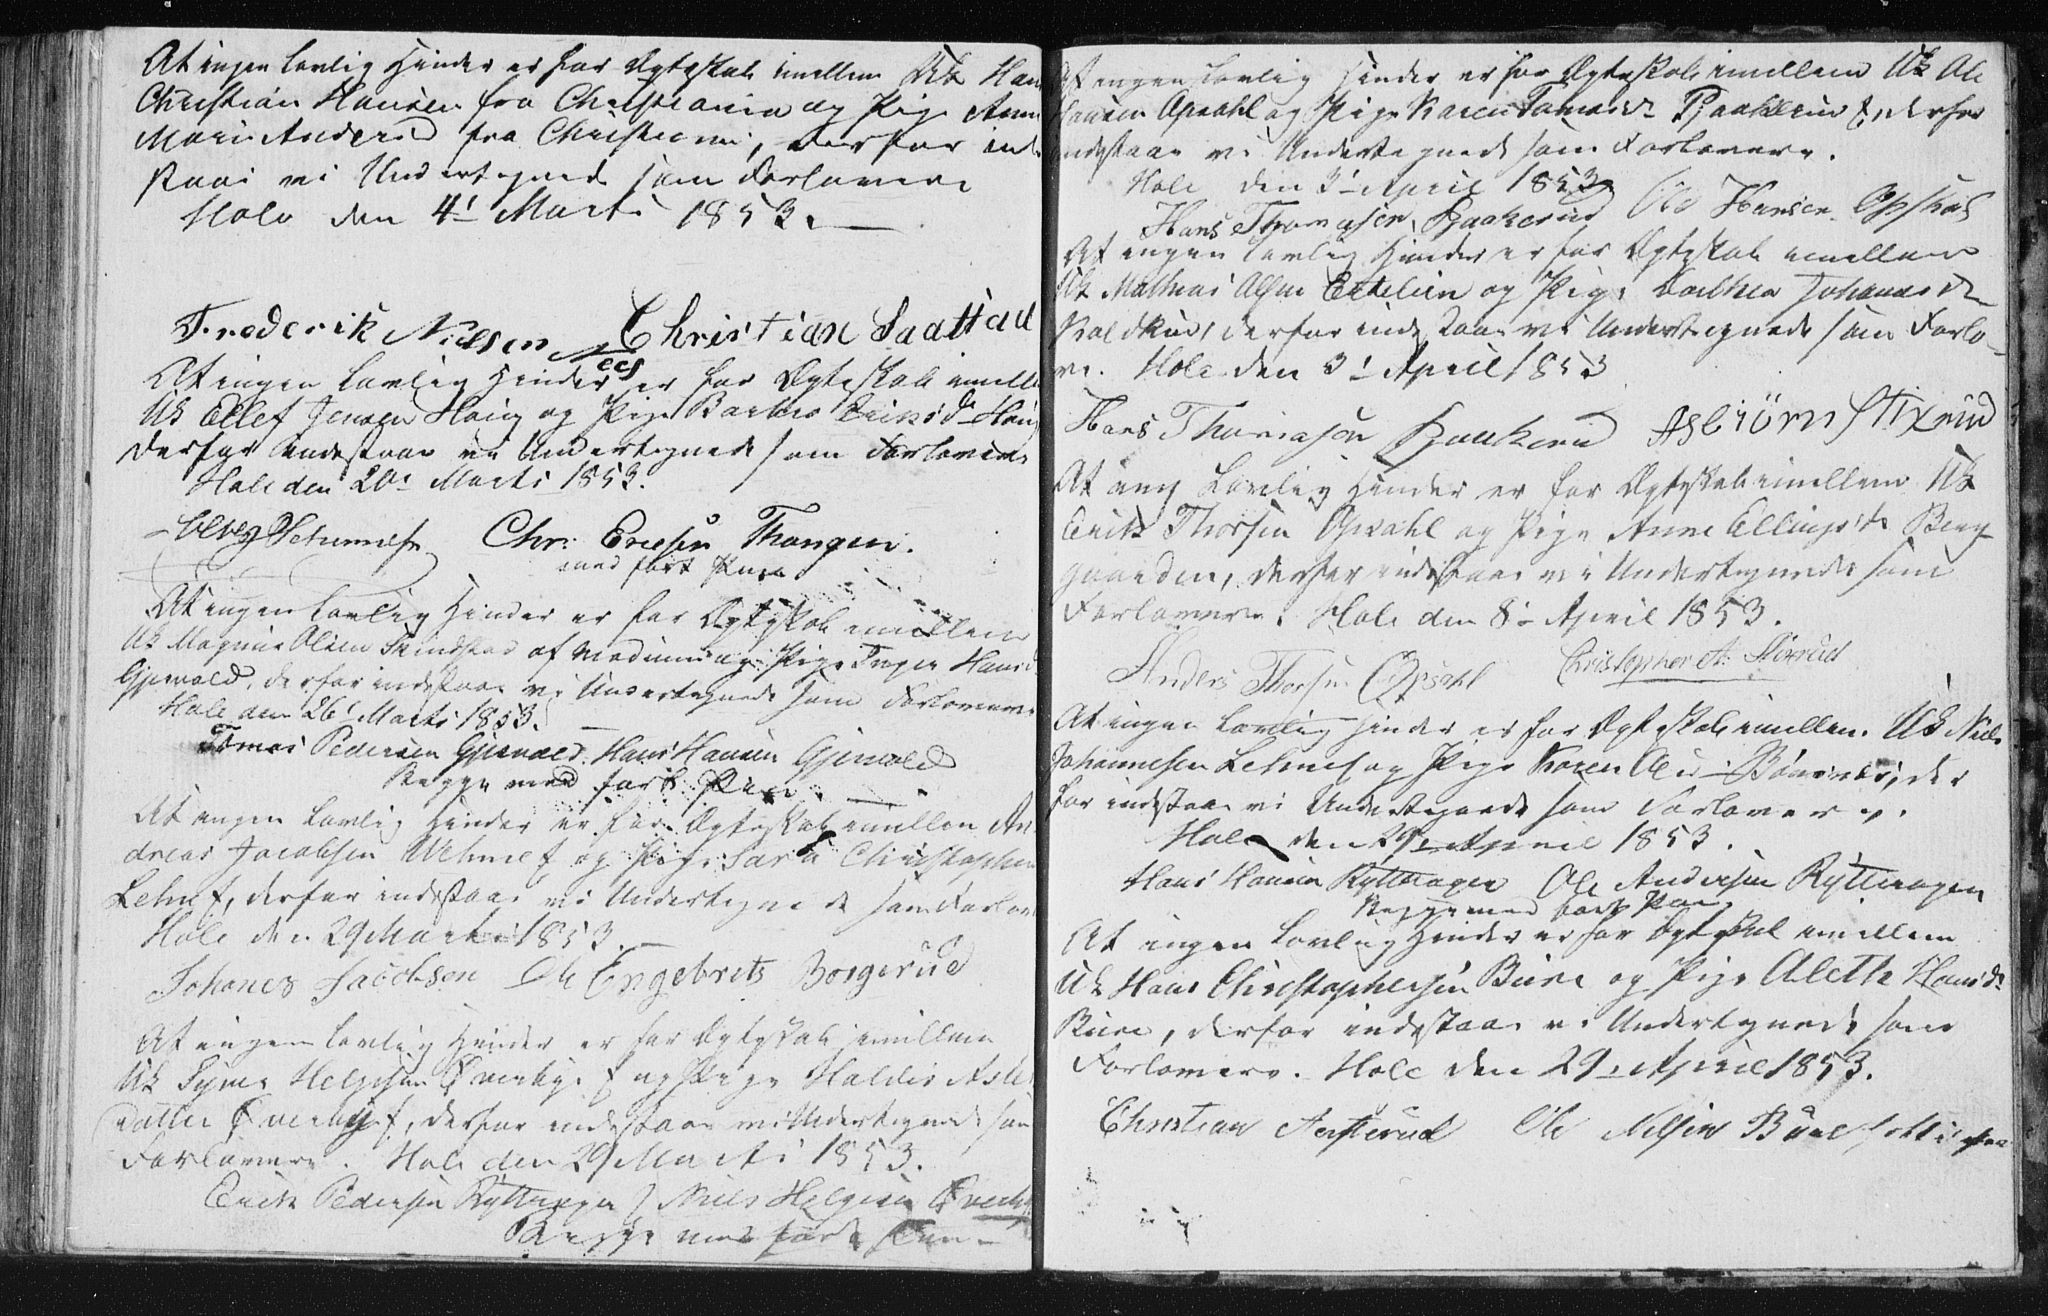 At ingen lovlig Hinder er for Ægteskab imellem Uk Hans
Christian Hansen fra Christiania og Pige Anne
Marie Andersd fra Christiania, derfor inde
staar vi Undertegnede som Forlovere
Hole den 4' Marts 1853.
Frederik Nielsen Næs Christian Saattad
At ingen lovlig Hinder er for Ægteskab imellem
Uk Ellef Jensen Houg og Pige Barbro Eriksd. Houg
derfor indestaar vi Undertegnede som Forlovere
Hole den 20' Marts 1853.
Chr: Ericsen Thangen.
med ført Pen
At ingen lovlig Hinder er for Ægteskab imellem
Uk Magnus Olsen af Modum og Pige Inger Hansd.
Gjesvold, derfor indestaar vi Undertegnede som Forlovere
Hole den 26' Marts 1853.
Tomas Pedersen Gjesvold. Hans Hansen Gjesvold
Begge med ført Pen.
At ingen Lovlig Hinder er for Ægteskab imellem An-
dreas Jacobsen og Pige Sara Christophers
derfor indestaar vi Undertegnede som Forlov
Hole den 29 Marts 1853.
Johanes Jacobsen Ole Engebrets Borgerud
At ingen lovlig Hinder er for Ægteskab imellem
Uk Syver Helgesen Øverby og Pige Haldis Asle
datter Øverby, derfor indestaar vi Undertegnede som
Forlovere. Hole den 29 Marts 1853.
Erik Pedersen Rytterager Niels Helgesen Øverby
Begge med ført Pen
At ingen lovlig Hinder er for Ægteskab imellem Uk Ole
Hansen Opsahl og Pige Karen Tomasd. Bjaakerud, derfor
indestaar vi Undertegnede som Forlovere.
Hole den 3' April 1853
Hans Thomasen Bjaakerud Ole Hansen Opshal
At ingen lovlig Hinder er for Ægteskab imellem
Uk Mathias Olsen og Pige Dorthea Johannesd.
derfor indestaar vi Undertegnede som Forlo-
re. Hole den 3' April 1853
Hans Thomasen Bjaakerud Asbiörn Stixrud
At ing Lovlig Hinder er for Ægteskab imellem Uk
Erik Thorsen Opsahl og Pige Anne Ellingsd. Berg
gaarden, derfor indestaar vi Undertegnede som
Forlovere. Hole den 8' April 1853.
Anders Thorsen Opsahl Christopher A. Stixrud
At ingen Lovlig Hinder er for Ægteskab imellem Uk Niels
Johannesen og Pige Karen Olesd. Bönsnæs, der
for indestaar vi Undertegnede som Forlovere.
Hole den 29' April 1853.
Hans Hansen Rytterager Ole Andersen Rytteragen
Begge med ført Pen.
At ingen Lovlig Hinder er for Ægteskab imellem
Uk Hans Christophersen Bure og Pige Alethe Hansd.
Bure, derfor indestaar vi Undertegnede som
Forlovere. Hole den 29' April 1853.
Christian Ole Nilsen Büre